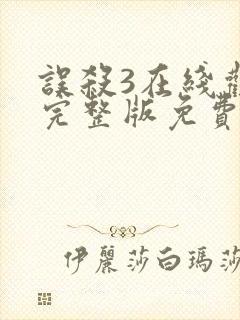 誤殺3在綫
完整版免費
伊麗莎白瑪莎